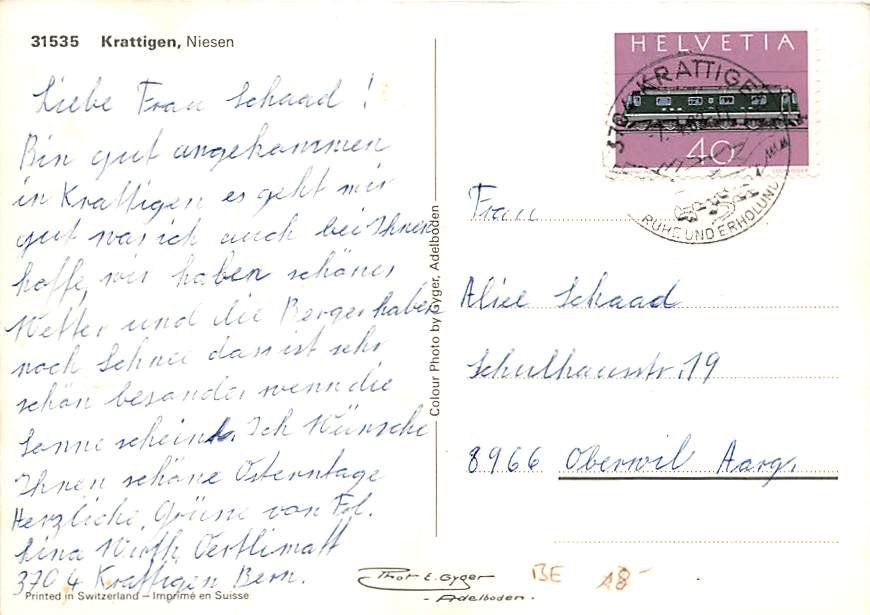 31535 Krattigen, Niesen
Liebe Frau Schaad !
Bin gut angekammen
in Krattigen es geht mir
gut was ich auch bei Ihnen
hoffe, wir haben schönes
Wetter und die Berge haben
noch Schnee dass ist sehr
schön besonder wenn die
Sonne scheint. Ich Wünsche
Ihnen schöne Osterntage
Herzliche, Grüsse von Frl.
Lina Wirth, Oertlimatt
3704 Krattigen Bern.
Printed in Switzerland — Imprimé en Suisse
Colour Photo by Gyger, Adelboden
Phot E. Gyger
- Adelboden -
BE
18-
HELVETIA
40
KRATTIGEN
RUHE UND ERHOLUNG
Frau
Alice Schaad
Schulhausstr. 19
8966 Oberwil Aarg.